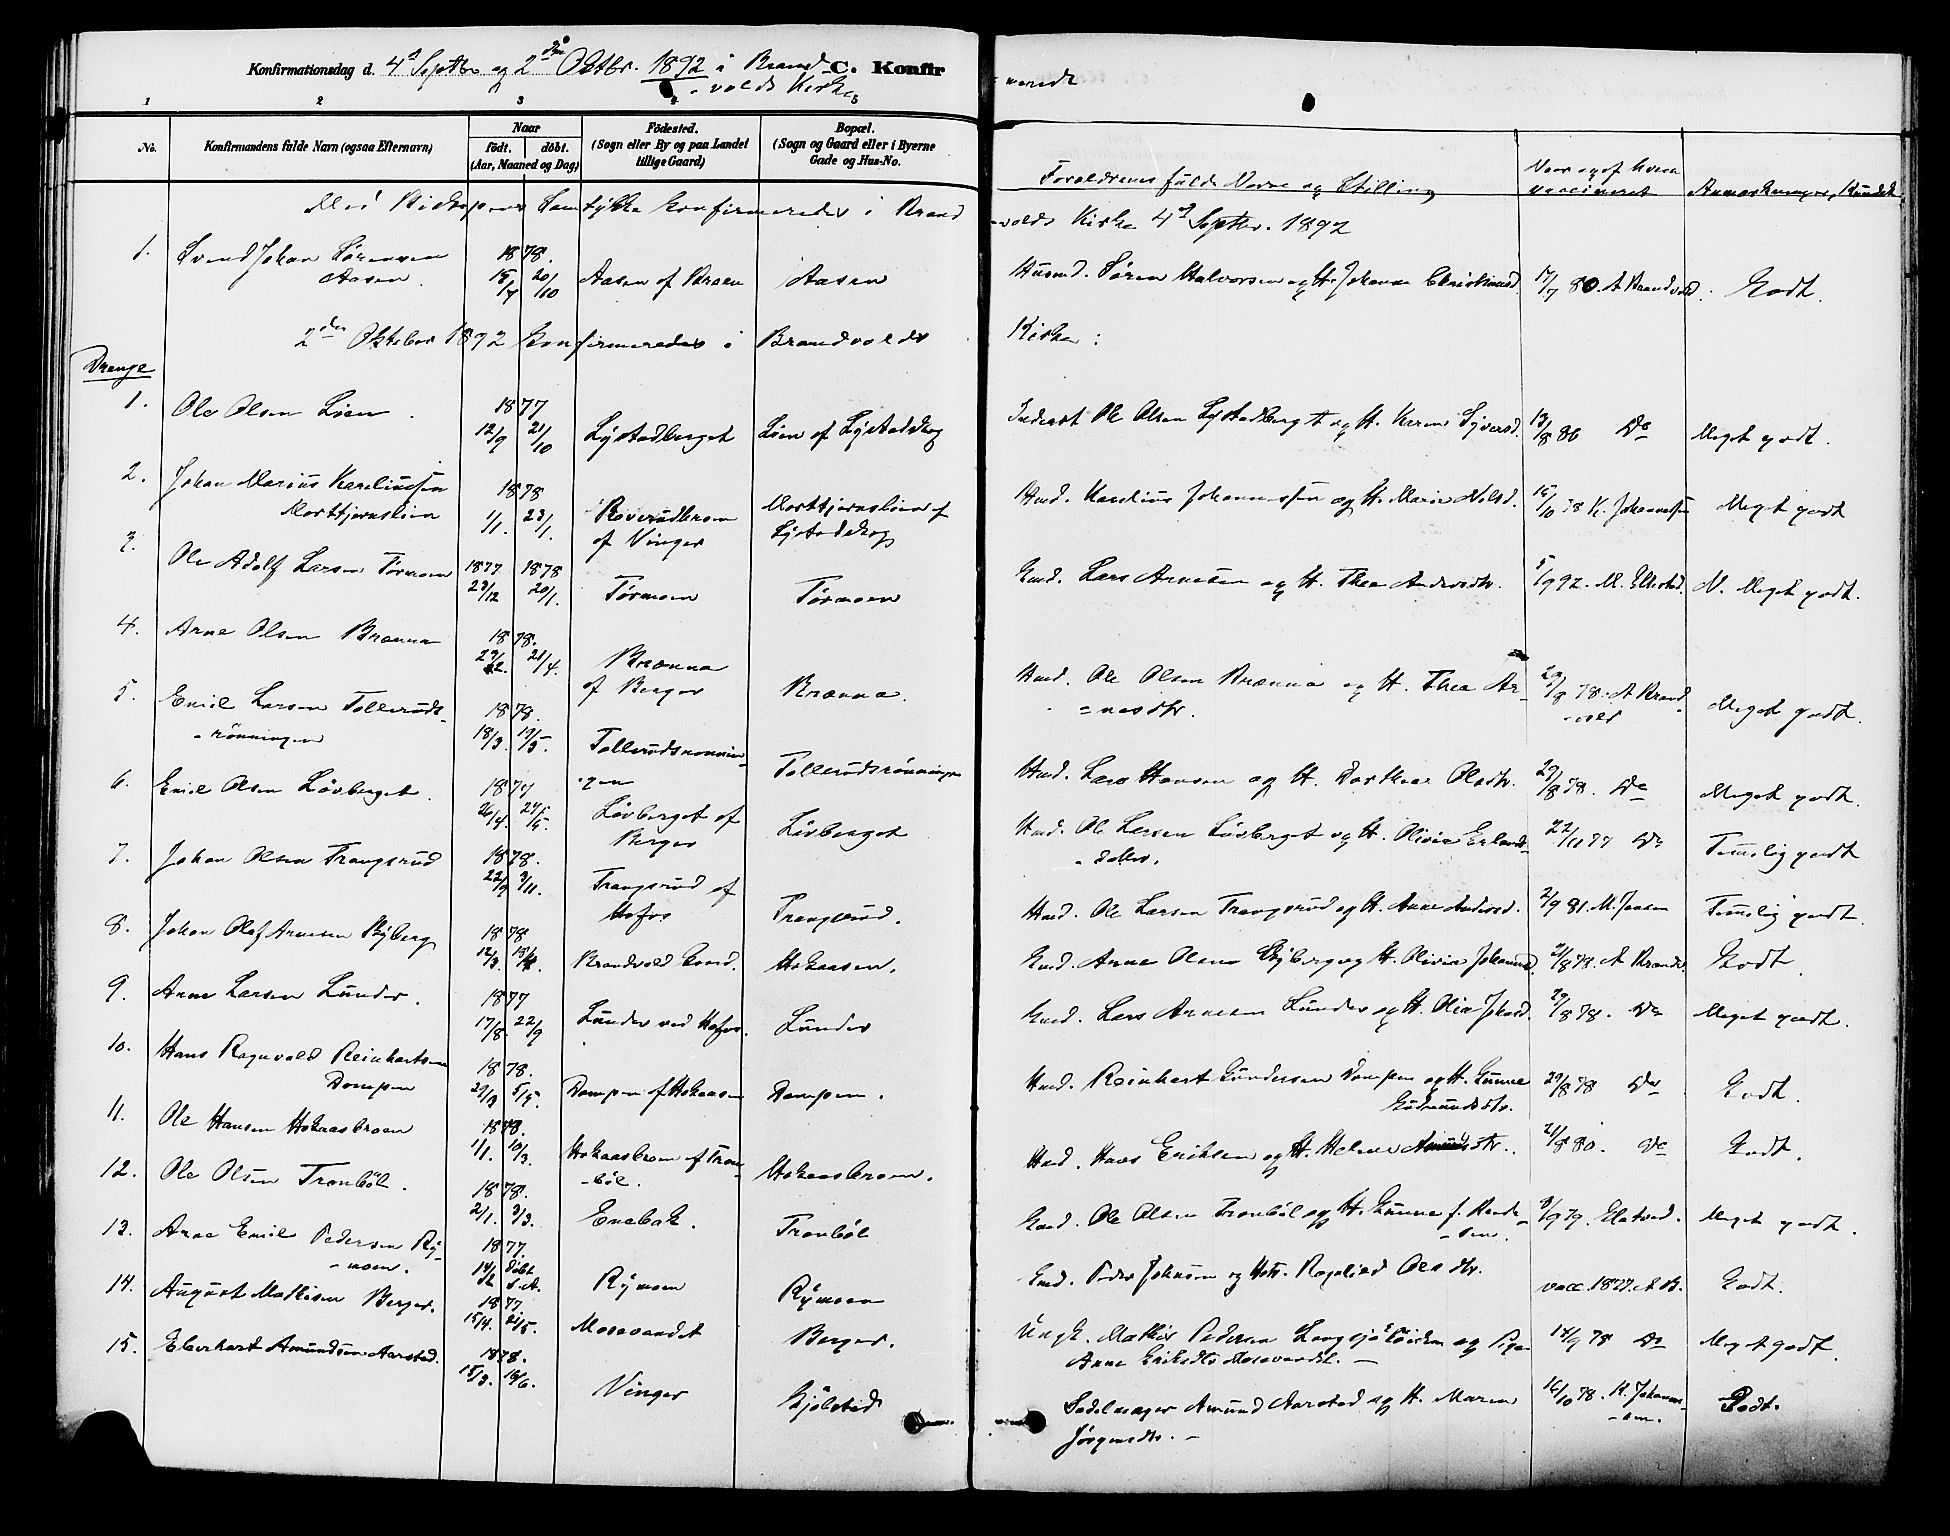 Konfirmationsdag d. 4d Septbr og 2den Oktbr. 1892 i Brand C. Konfir
-volds Kirke
1 2 3 4 5
No. Konfirmandens fulde Navn (ogsaa Efternavn) Naar födt. döbt. (Aar, Maaned og Dag) Födested. (Sogn eller By og paa Landet tillige Gaard) Bopæl. (Sogn og Gaard eller i Byerne Gade og Hus-No. Forældrenes fulde Navne og Stilling Anmærkninger, Kundsk.
Med Biskopens Samtykke konfirmeredes i Brand
-volds Kirke 4d Septbr. 1892
1. Svend Johan Sörensen Aasen 1878. 15/7 20/10 Aasen af Braen Aasen Husmd. Sören Halvorsen og H. Johanne Christiansd. 17/7 80. A Brandvold. Godt.
2den Oktober 1892 konfirmeredes i Brandvolds Kirke:
Drenge
1. Ole Olsen Lien. 1877 12/9 21/10 Lystadberget Lien af Lystadskog Inderst Ole Olsen Lystadberget og H. Karen Syversd. 13/8 86 Do Meget godt.
2. Johan Marius Karelinssen Morttjernslien 1878 1/1. 23/1. Roverudkroen af Vinger Morttjernslien af Lystadskog Hmd. Karelius Johannessen og H. Marie Nilsd. 15/10 78 K. Johannessen Meget godt
3. Ole Adolf Larsen Törmoen 1877 23/12 1878 20/1. Törmoen Törmoen Gmd. Lars Arnesen og H. Thea Andersdtr. 5/9 92. M. Meget godt.
4. Arne Olsen Brænna 1878. 21/4. Brænna af Berger Brænna. Hmd. Ole Olsen Brænna og H. Thea Arnesdtr. 29/8 78. A Brandvold Meget godt.
5. Emil Larsen Tollerudsrönningen 1878. 18/3. 19/5. Tollerudsrönningen Tollerudsrönningen Hmd. Lars Hansen og H. Dorthea Olsdtr. 29/8 78. Do Meget godt.
6. Emil Olsen Lövberget. 1877 26/4. Lövberget af Berger Lövberget Hmd. Ole Larsen Lövberget og H. Olivia Erlandsdtr. 22/11 77 Do Temelig godt
7. Johan Olsen Trangsrud 1878. 22/9 3/11. Trangsrud af Hofos Trangsrud. Hmd. Ole Larsen Trangsrud og H. Anne Andersd. 2/9 81. M. Jensen Temelig godt.
8. Johan Olaf Arnesen Byberg 1878 12/3. Brandvold Hokaasen. Gmd. Arne Olsen Byberg og H. Olivia Johannesd. A Brandv. Godt.
9. Arne Larsen Lunder. 1877 17/8. 22/9 Lunder ved Hofos. Lunder Gmd. Lars Arnesen Lunder og H. Olia Johsd. 29/8 78. Do Meget godt.
10. Hans Ragnvald Reinhartsen Dompen 1878. 29/3 5/5. Dompen af Hokaasen Dompen. Hmd. Reinhart Gundersen Dompen og H. Gunne Gudmundsdtr. 29/8 78 Do Godt.
11. Ole Hansen Hokaasbroen 1878. 1/1. 10/3. Hokaasbroen af Tronböl. Hokaasbroen. Hmd. Hans Eriksen og H. Helene Amundsdtr. 21/8 80. Do Godt.
12. Ole Olsen Tronböl. 1878. 2/1. 3/3. Enebak. Tronböl Gmd. Ole Olsen Tronböl og H. Gunne f. 3/9 79. Meget godt.
13. Arne Emil Pedersen Rymoen. 1877. 14/12 döbt s.A. Rymoen Rymoen Gmd. Peder Johnsen og Hstr. Ragnhild Olsdtr. vacc. 1877. A B. Godt.
14. August Mathisen Berger. 1877. 15/4. 21/5. Mosevandet Berger. Ungk. Mathis Pedersen og Pige Anne Eriksdtr Mosevandet. – 14/9 78 Do Meget godt.
15. Eberhart Amundsen Aarstad. 1878. 15/3. 16/6. Vinger Gjölstad Sadelmager Amund Aarstad og H. Maren Jörgensdtr. – 16/10 78. K. Johannessen. Godt.